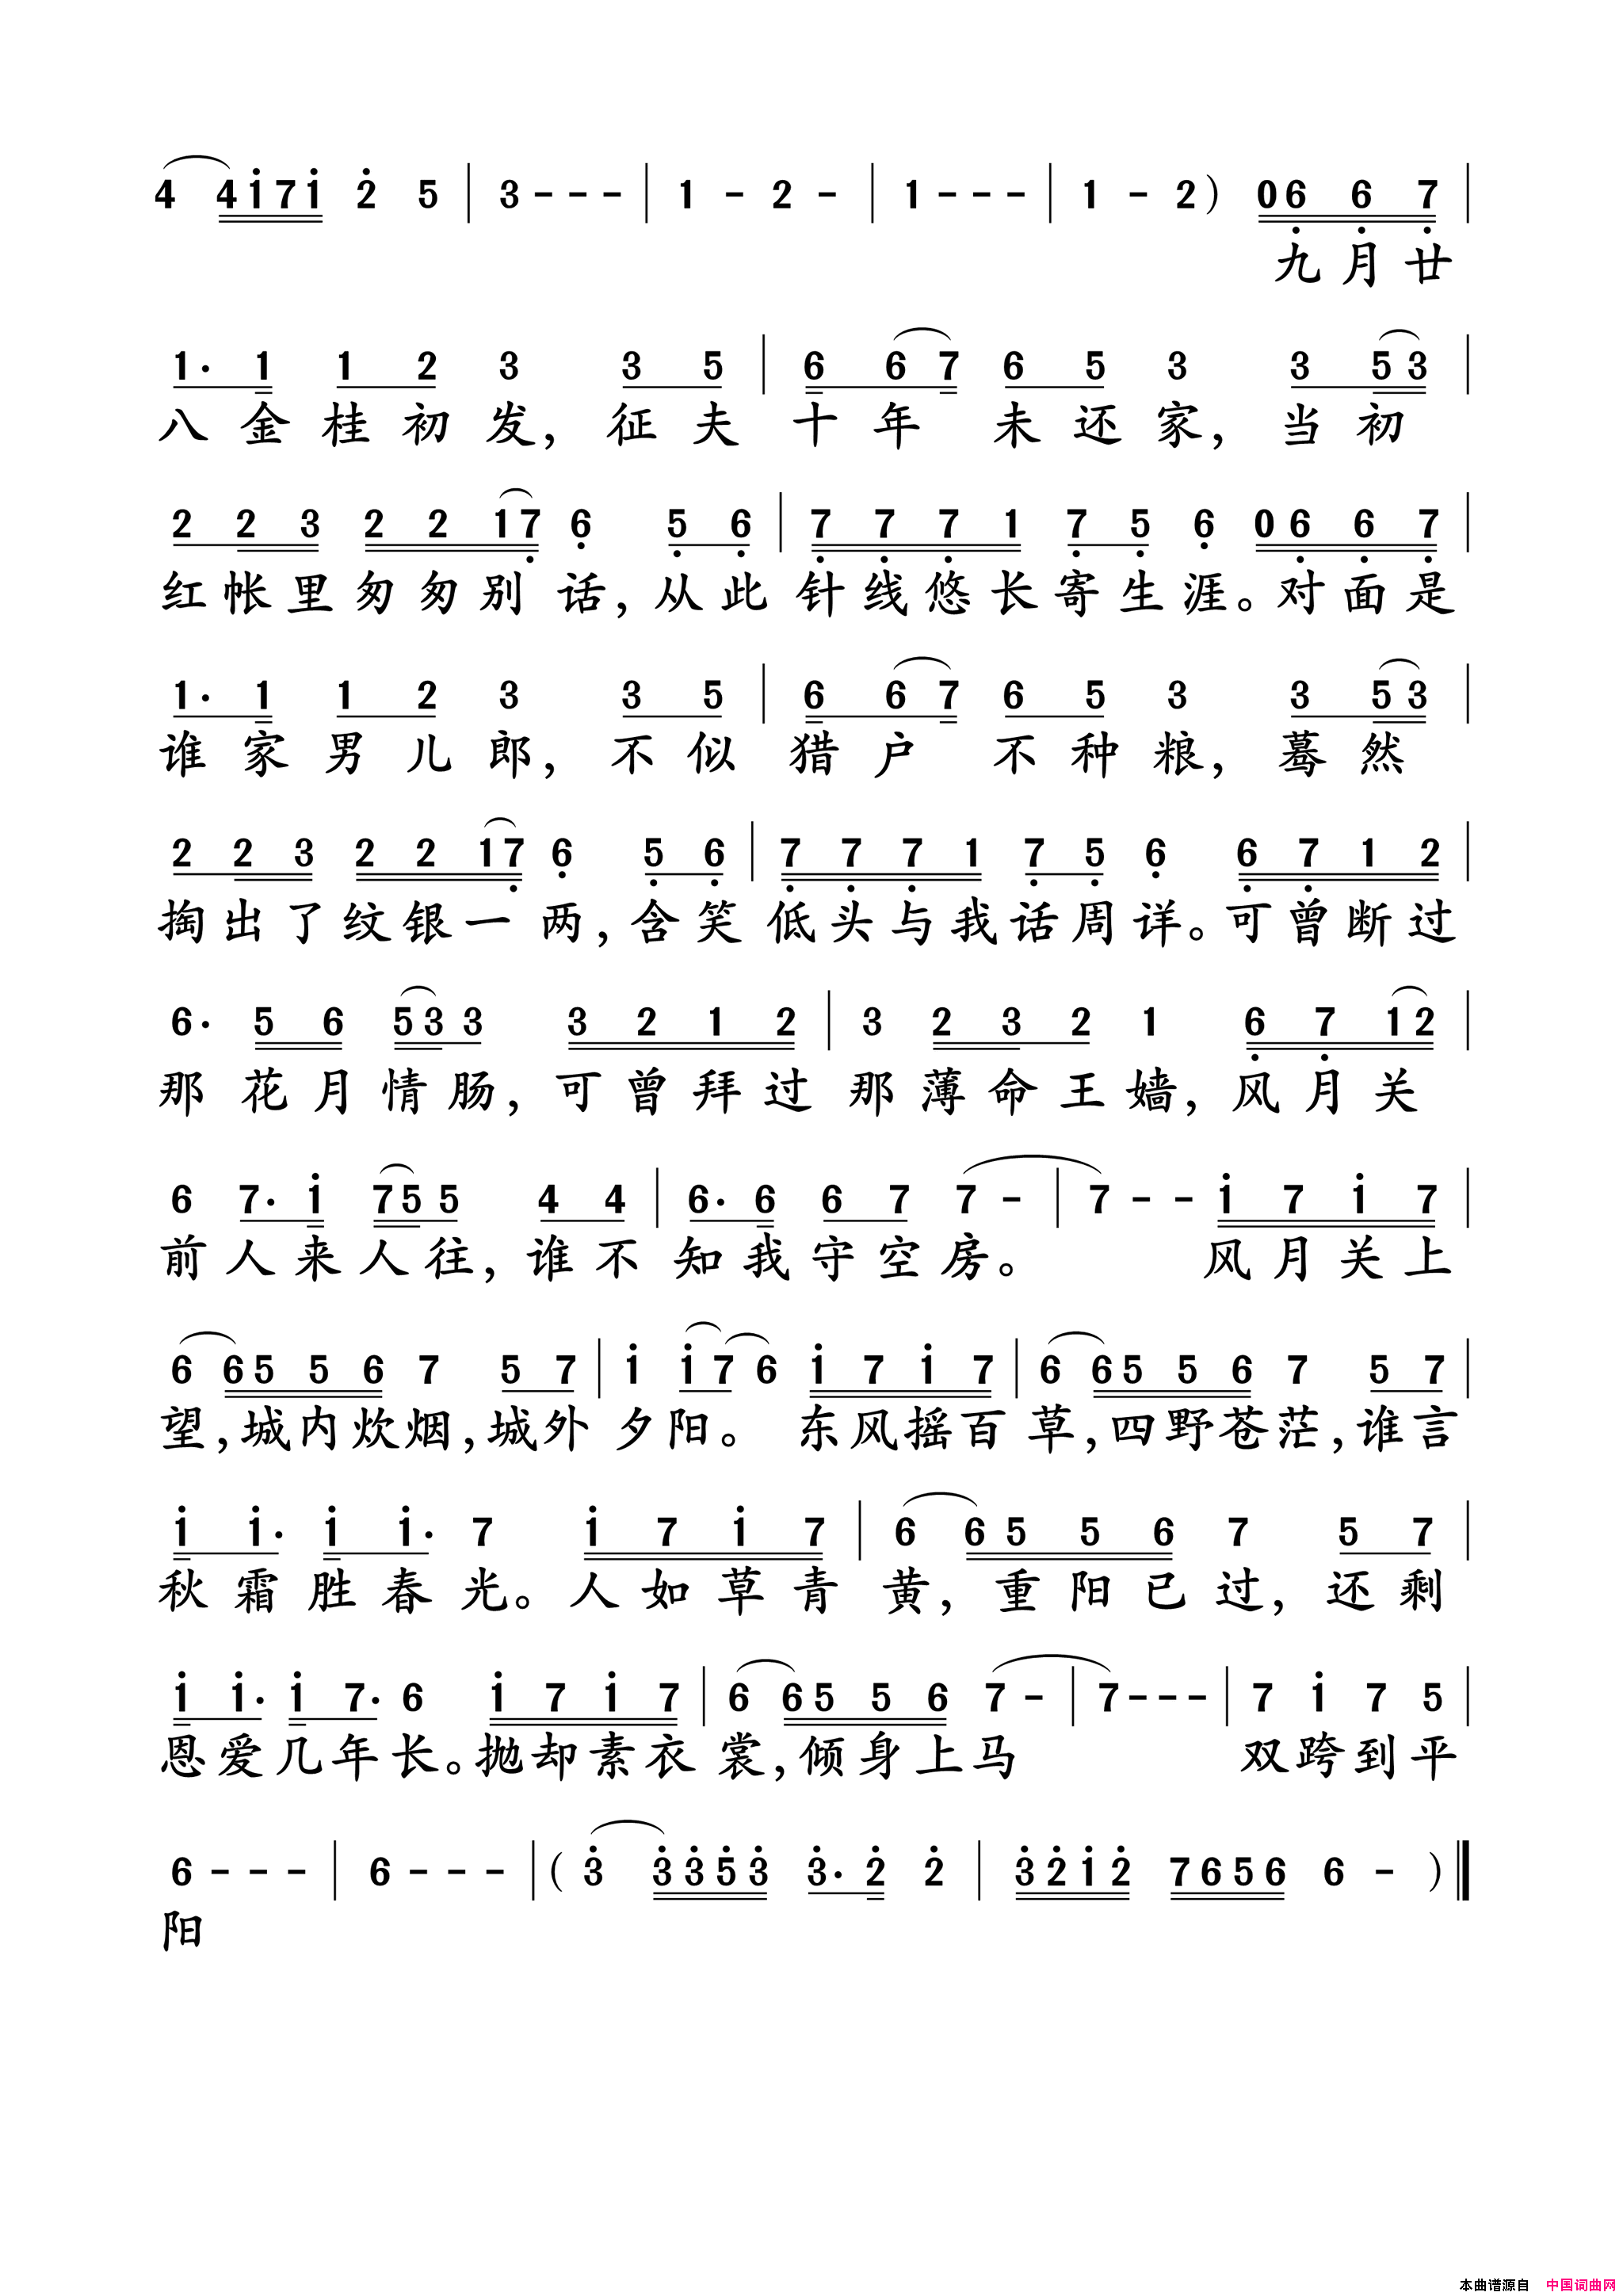 4 4i7i 2 5 | 3 - - - | 1 - 2 - | 1 - - - | 1 - 2 ) 06 6 7 |
九月廿
1. 1 1 2 3 3 5 | 6 6 7 6 5 3 3 5 3 |
八金桂初发，征夫十年未还家，当初
2 2 3 2 2 1 7 6 5 6 | 7 7 7 1 7 5 6 0 6 6 7 |
红帐里匆匆别话，从此针线悠长寄生涯。对面是
1. 1 1 2 3 3 5 | 6 6 7 6 5 3 3 5 3 |
谁家男儿郎，不似猎户不种粮，蓦然
2 2 3 2 2 1 7 6 5 6 | 7 7 7 1 7 5 6 6 7 1 2 |
掏出了纹银一两，含笑低头与我话周详。可曾断过
6. 5 6 5 3 3 3 2 1 2 | 3 2 3 2 1 6 7 1 2 |
那花月情肠，可曾拜过那薄命王嫱，风月关
6 7. i 7 5 5 4 4 | 6. 6 6 7 7 - | 7 - - i 7 i 7 |
前人来人往，谁不知我守空房。风月关上
6 6 5 5 6 7 5 7 | i i 7 6 i 7 i 7 | 6 6 5 5 6 7 5 7 |
望，城内炊烟，城外夕阳。东风摇百草，四野苍茫，谁言
i i. i i. 7 i 7 i 7 | 6 6 5 5 6 7 5 7 |
秋霜胜春光。人如草青黄，重阳已过，还剩
i i. i 7. 6 i 7 i 7 | 6 6 5 5 6 7 - | 7 - - - | 7 i 7 5 |
恩爱几年长。抛却素衣裳，倾身上马双跨到平
6 - - - | 6 - - - | ( 3 3 3 5 3 3. 2 2 | 3 2 i 2 7 6 5 6 6 - ) ‖
阳
本曲谱源自 中国词曲网